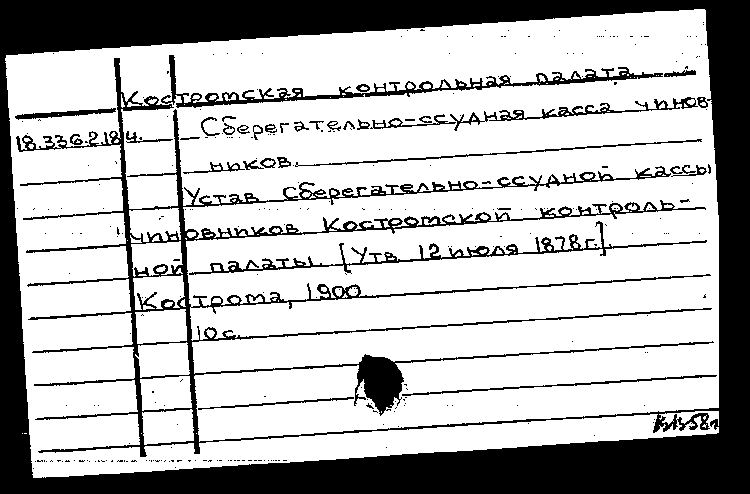 Костромская контрольная палата.
18.336.2.184. Сберегательно-ссудная касса чинов-
ников.
Устав Сберегательно-ссудной кассы
чиновников Костромской контроль-
ной палаты. [Утв 12 июля 1878 г.].
Кострома, 1900
10 с.